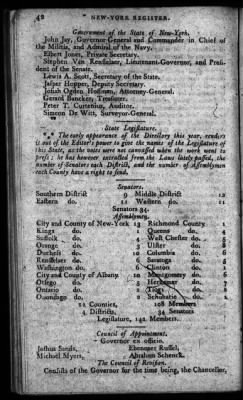 42 NEW-YORK REGISTER.
Government of the State of New-York.
John Jay, Governor-General and Commander in Chief of
the Militia, and Admiral of the Navy.
Elbert Jones, Private Secretary.
Stephen Van Rensselaer, Lieutenant-Governor, and Presi-
dent of the Senate.
Lewis A. Scott, Secretary of the State.
Jasper Hopper, Deputy Secretary.
Josiah Ogden Hoffman, Attorney-General.
Gerard Bancker, Treasurer.
Peter T. Curtenius, Auditor.
Simeon De Witt, Surveyor-General.
State Legislature.
*** The early appearance of the Directory this year, renders
it out of the Editor's power to give the names of the Legislature of
this State, as the votes were not canvassed when the work went to
press; he however extracted from the Laws lately passed, the
number of Senators each District, and the number of Assemblymen
each County have a right to send.
Senators.
Southern District 9 Middle District 12
Eastern do. 11 Western do. 11
Senators 34.
Assemblymen.
City and County of New-York 13 Richmond County
Kings do. 1 Queens do. 4
Suffolk do. 4 West Chester do. 5
Orange do. 3 Ulster do. 8
Duchess do. 10 Columbia do. 6
Rensselaer do. 6 Saratoga do. 5
Washington do. 6 Clinton do.
City and County of Albany 10 Montgomery do. 6
Otsego do. 5 Herkemer do.
Ontario do. 2 Tioga do.
Onondago do. 2 Schoharie do.
22 Counties, 108 Members
4 Districts, 34 Senators
Legislature, 142 Members.
Council of Appointment.
Governor ex officio.
Joshua Sands, Ebenezer Russel,
Michael Myers, Abraham Schenck.
The Council of Revision.
Consists of the Governor for the time being, the Chancellor,